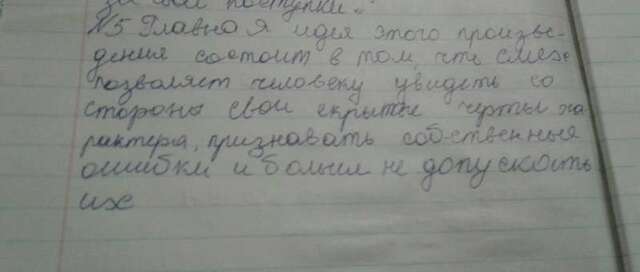 за свои поступки."
№5 Главная идея этого произве-
дения состоит в том, что смех
позволяет человеку увидеть со
стороны свои скрытые черты ха
рактера, признавать собственные
ошибки и больше не допускать
их